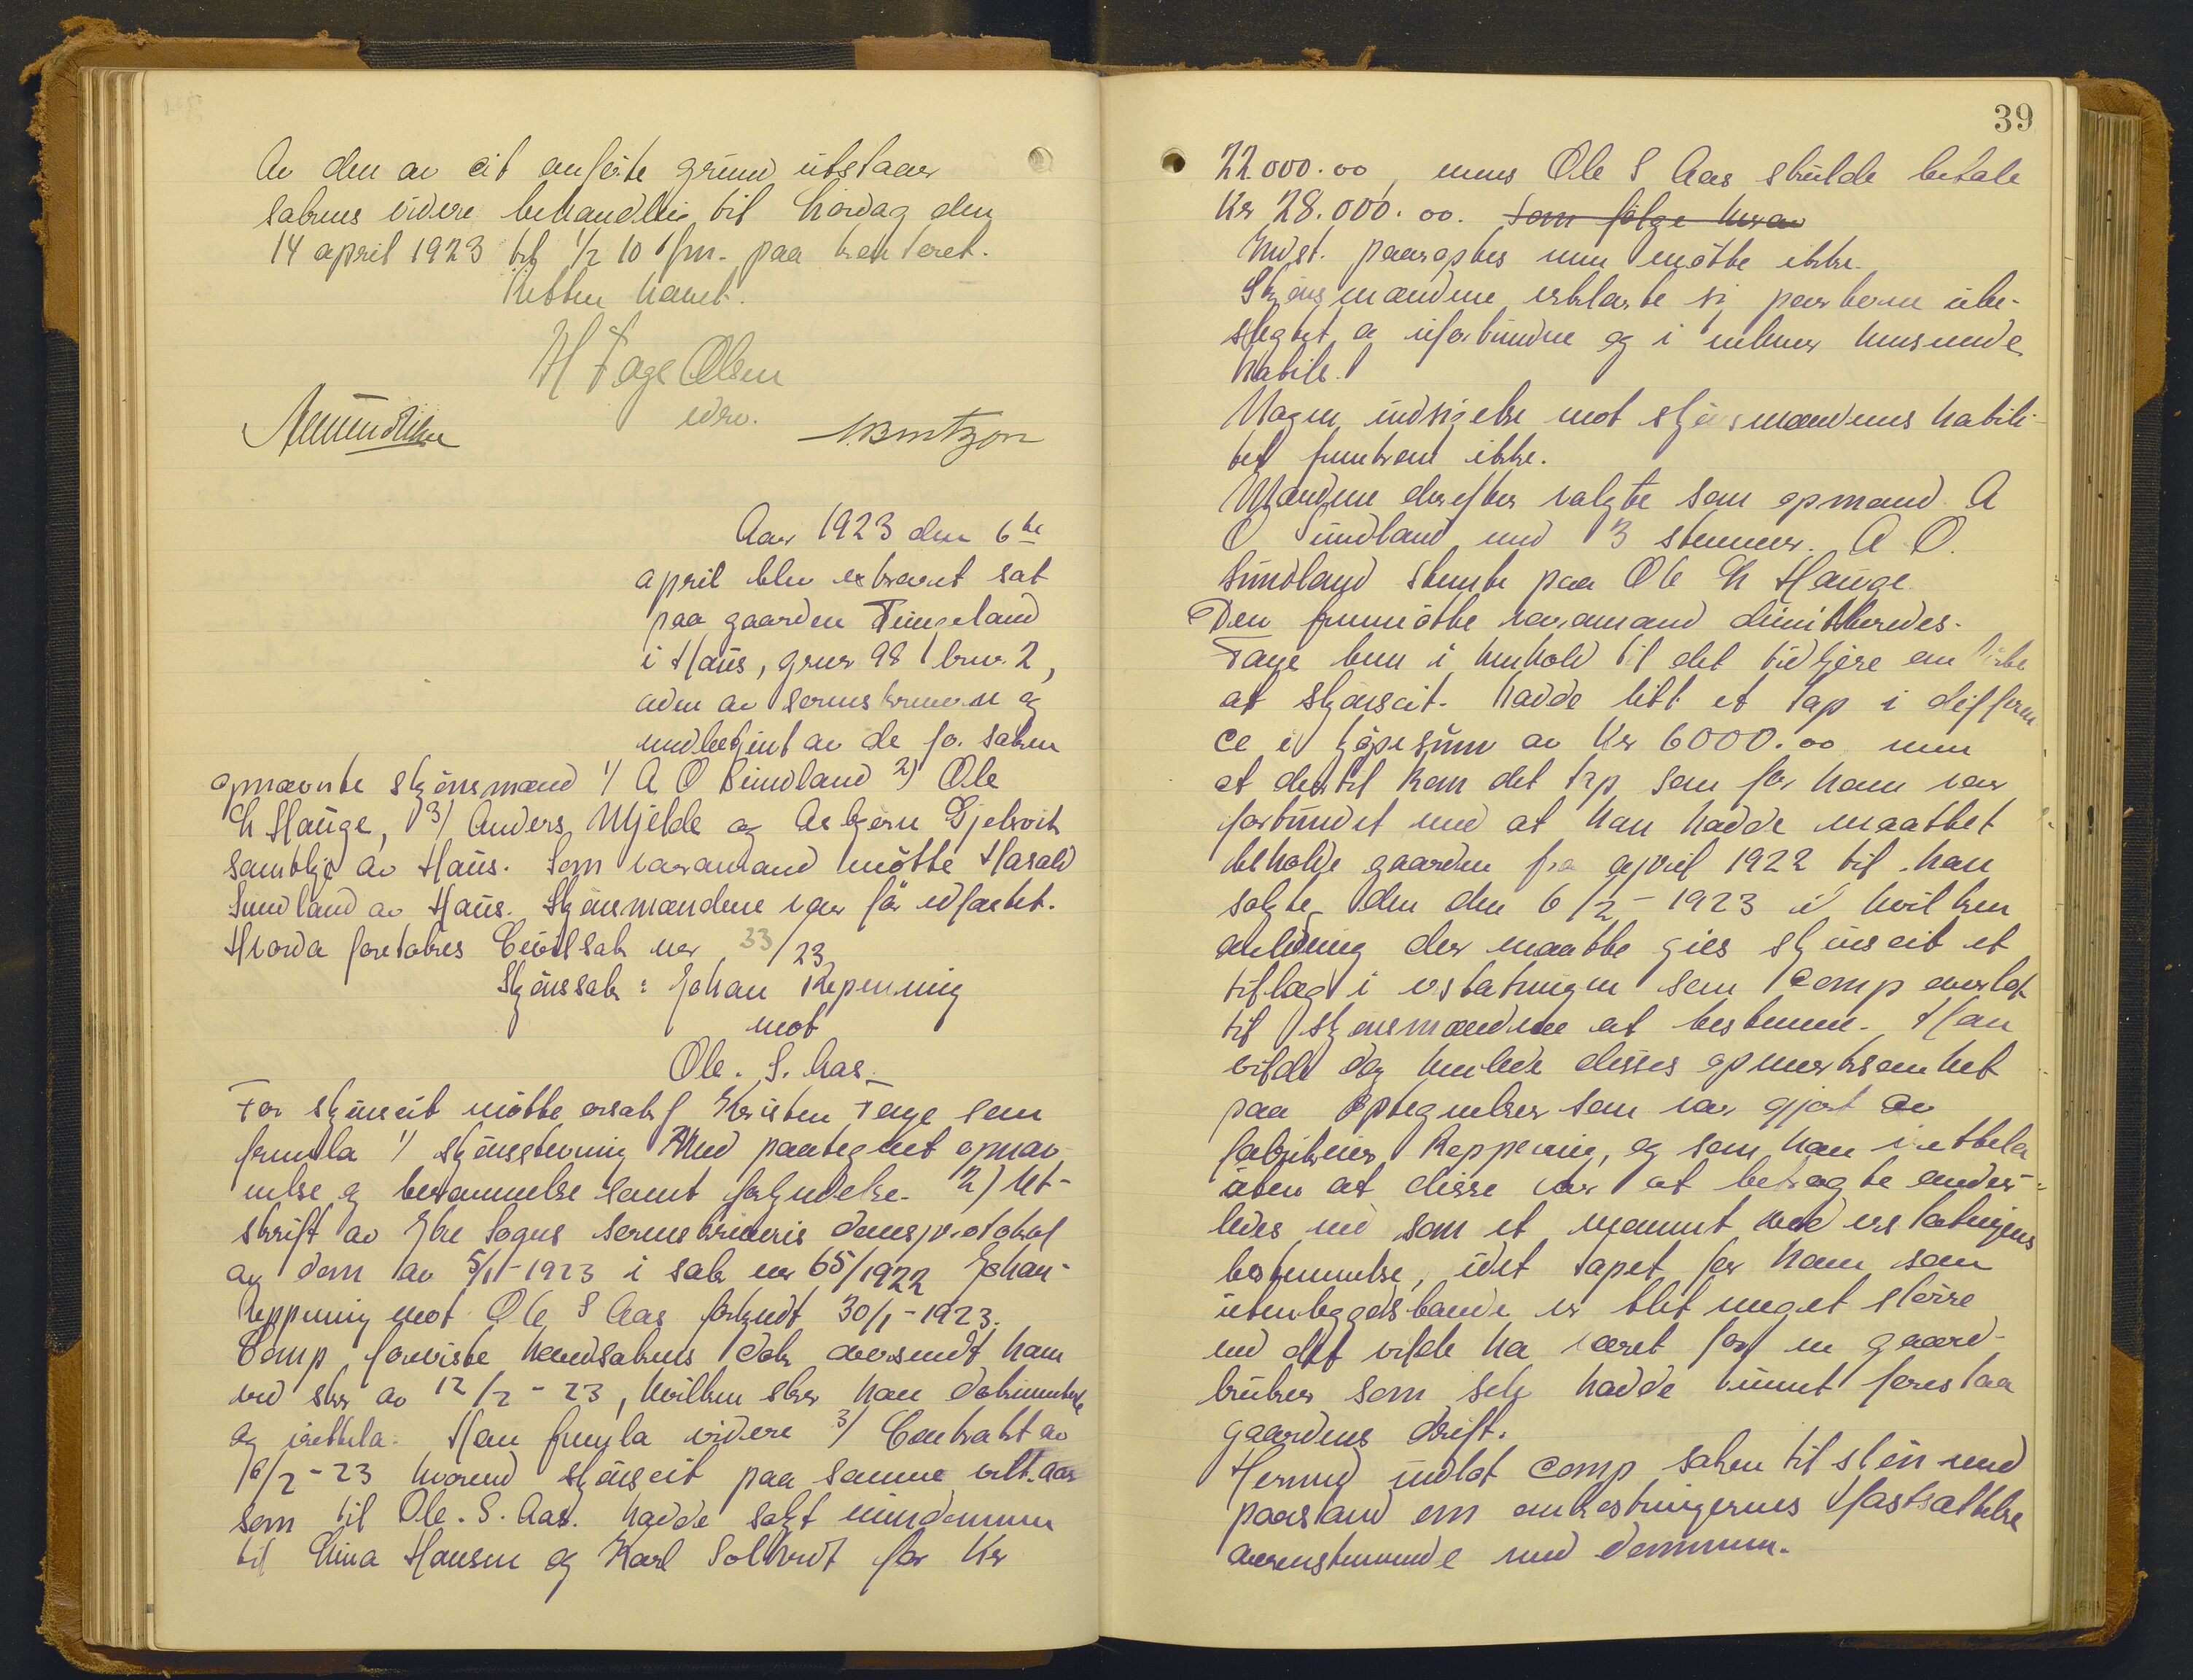 Av den av cit anførte grund utstaar
sakens videre behandling til lørdag den
14 april 1923 kl ½ 10 fm. paa kontoret.
Retten hævet.
H Fage Olsen
edsv.
Aar 1923 den 6te
april blev extraret sat
paa gaarden Tungeland
i Haus, gnr 98 brnr. 2,
aden av sorenskriveren og
medbetjent av de for saken
opnævnte skjønsmænd 1) A O Sundland 2) Ole
L Hauge, 3) Anders Mjelde og Asbjørn Gjelsvik
samtlige av Haus. Som varamand møtte Harald
Sundland av Haus. Skjønsmændene var før edfæstet.
Hvorda foretokes Civilsak nr 33/23
Skjønssak: Johan Repenning
mot
Ole. S. Aas.
For skjønscit møtte orsakf Kristen Faye som
fremla 1) skjønsstevning med paategnet opnæv-
nelse og berammelse samt forkyndelse. 2) Ut-
skrift av Ytre Sogns sorenskriveris domsprotokol
av dom av 5/1-1923 i sak nr 65/1922 Johan
Reppening mot Ole S Aas forkyndt 30/1-1923.
Comp foreviste hovedsakens dok oversendt ham
ved skr av 12/2-23, hvilken skr han dokumenterte
og irettela. Han fremla videre 3) Contrakt av
16/2-23 hvorved skjønscit paa samme vilkaar
som til Ole. S. Aas. hadde solgt eiendommen
til Nina Hansen og Karl Solhvidt for Kr
39
22.000.00, mens Ole S Aas skulde betale
Kr 28.000.00. Som følge herav
Indst. paaroptes men møtte ikke.
Skjønsmændene erklærte sig parterne ube-
slegtet og uforbundne og i enhver henseende
habile.
Nogen indsigelse mot skjønsmændenes habili-
tet fremkom ikke.
Mændene derefter valgte som opmand A
O Sundland med 3 stemmer. A O.
Sundland stemte paa Ole L Hauge.
Den fremmøtte varamand dimitteredes.
Faye bem i henhold til det tidligere anførte
at skjønscit. hadde lidt et tap i differen
ce i kjøpesum av Kr 6000.00 men
at dertil kom det tap som for ham var
forbundet med at han hadde maattet
beholde gaarden fra april 1922 til han
solgte den den 6/2-1923 i hvilken
anledning der maatte gies skjønscit et
tillæg i erstatningen som comp overlot
til skjønsmændene at bestemme. Han
vilde dog henlede disses opmerksomhet
paa optegnelser som var gjort av
fabrikeier Reppening, og som han irettela
uten at disse var at betragte ander-
ledes end som et moment ved erstatningens
bestemmelse, idet tapet for ham som
utenbygdsboende er blit meget større
end det vilde ha været for en gaard-
bruker som selv hadde kunnet forestaa
gaardens drift.
Hermed indlot comp saken til skjøn med
paastand om omkostningernes fastsættelse
overensstemmende med dommen.